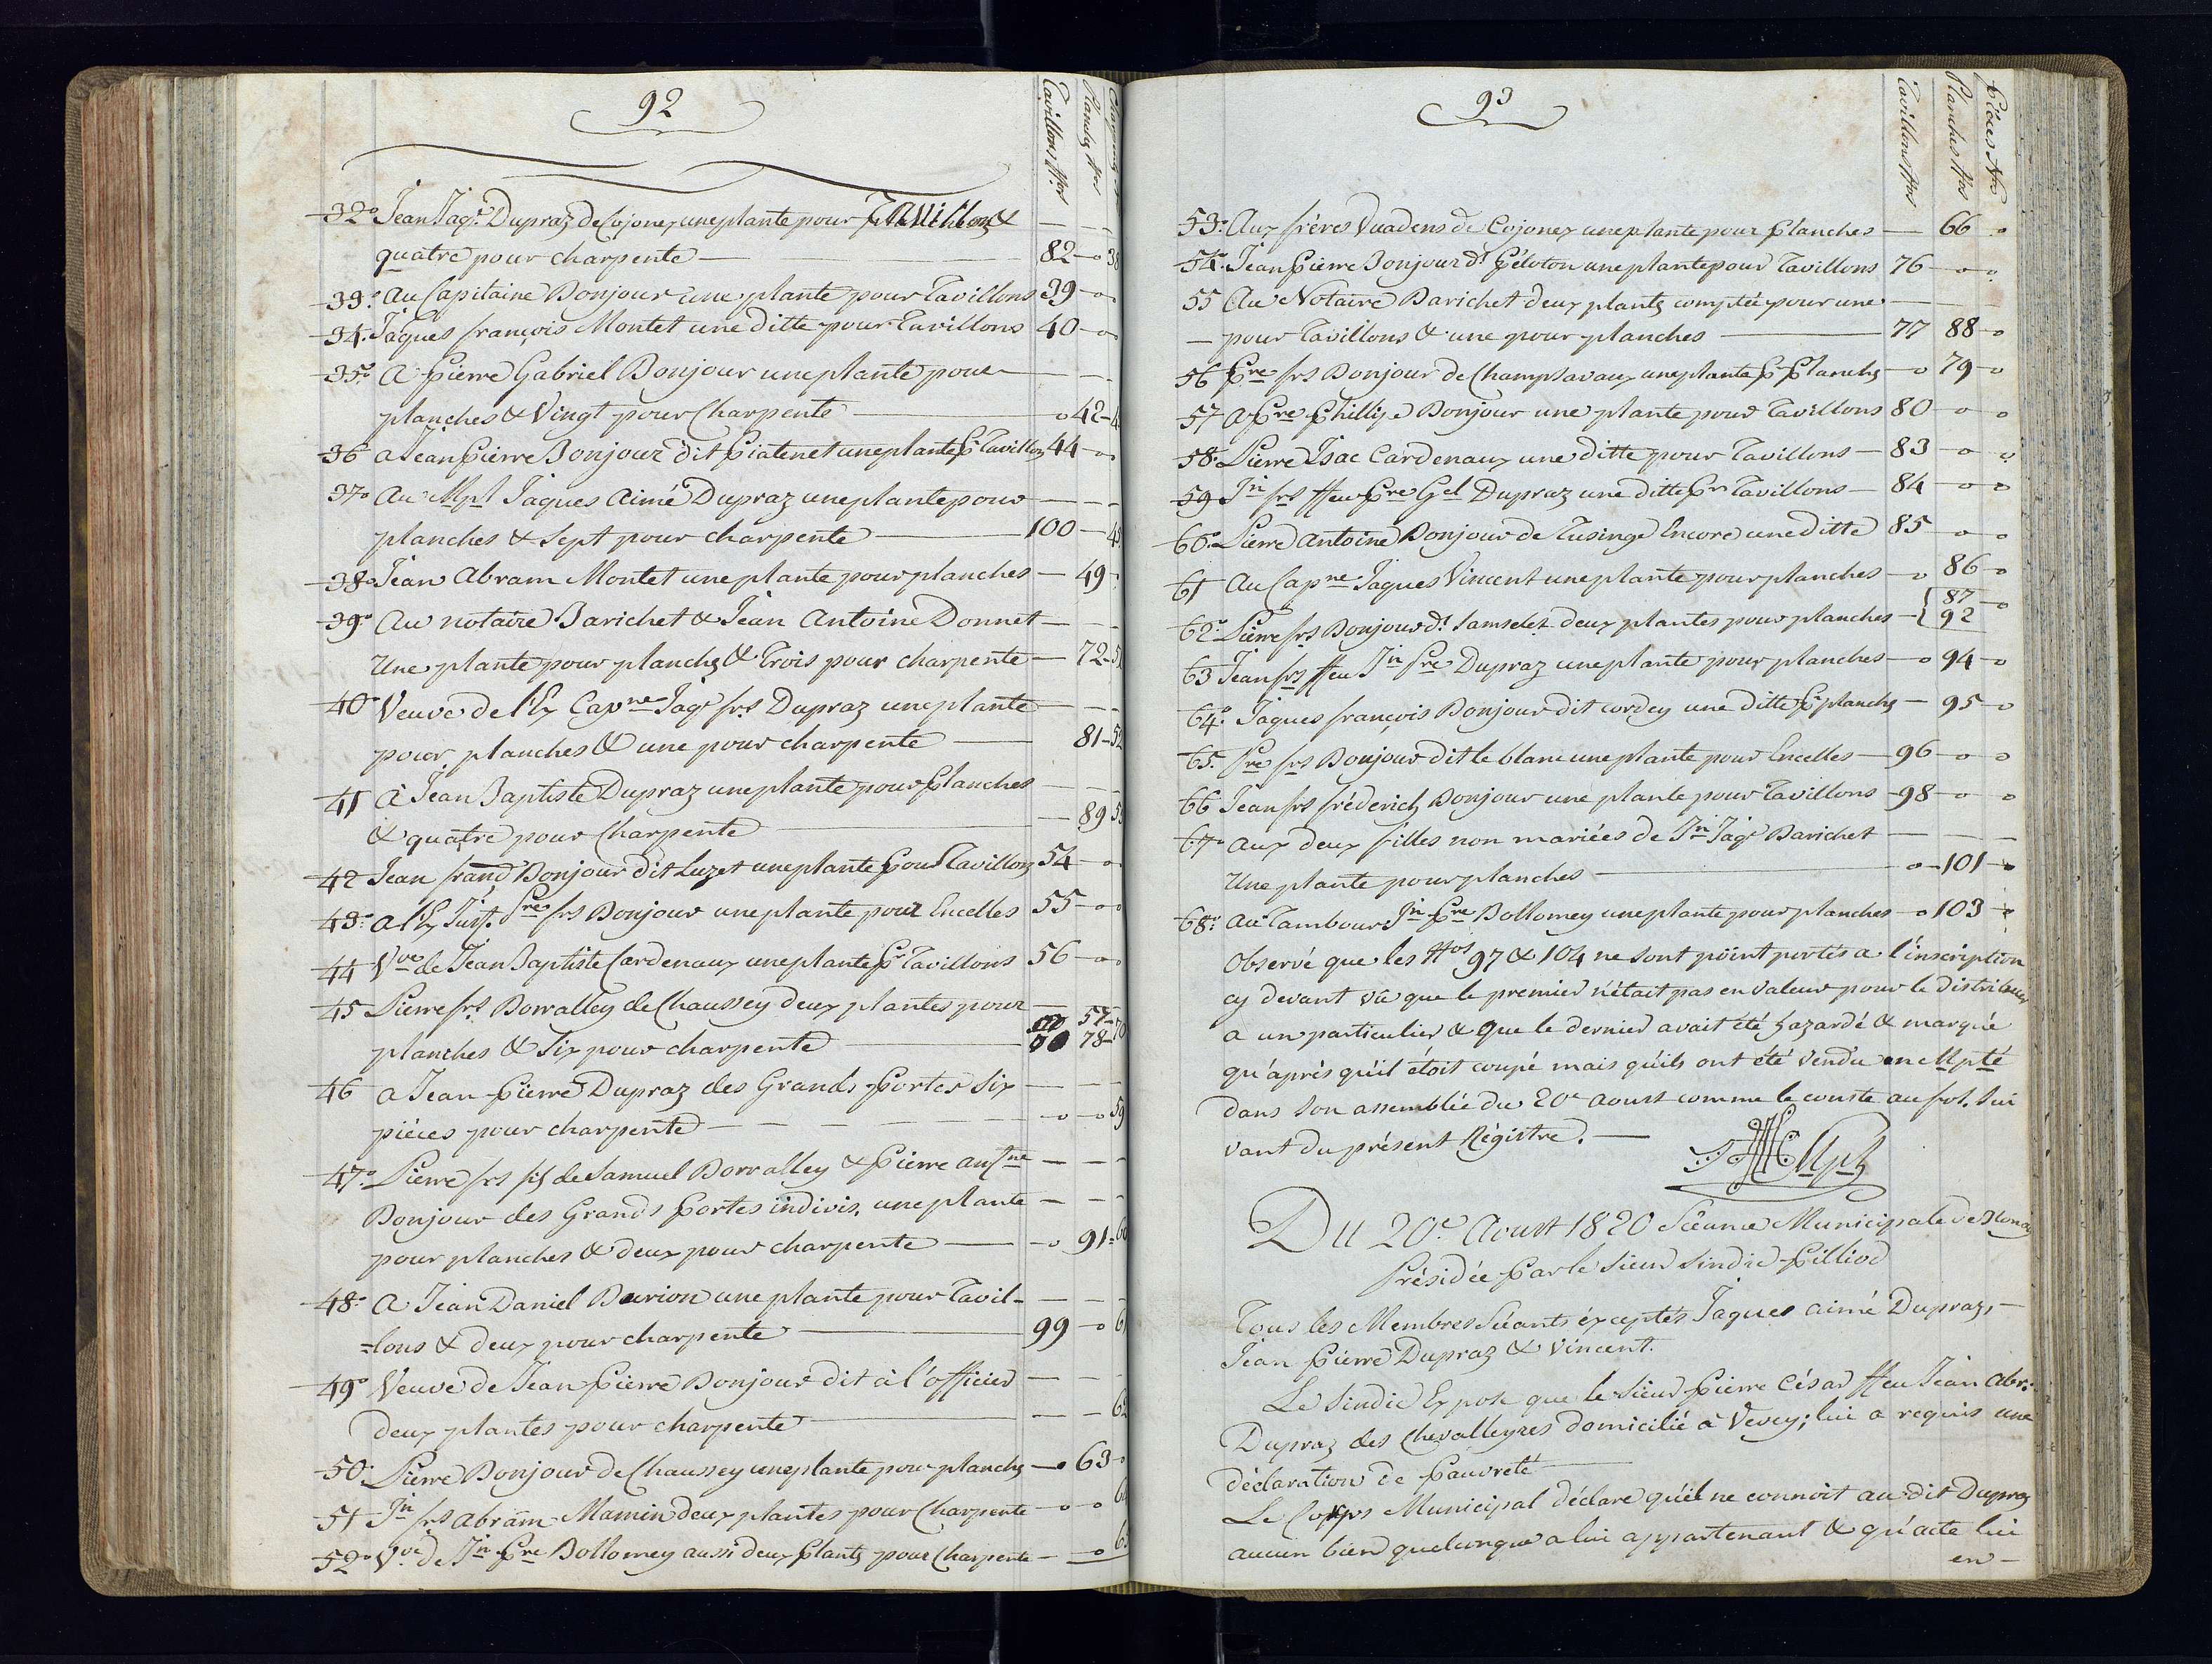 92
Tavillons Nos
Planches Nos
32o Jean Jaqs Dupraz de Cojonex une plante pour Tavillons &
quatre pour charpente — 82 — o 38
33o Au Capitaine Bonjour une plante pour Tavillons 39 — o
34. Jaques françois Montet une ditte pour Tavillons 40 — o
35o A Pierre Gabriel Bonjour une plante pour
planches & Vingt pour Charpente o 42 —
36 a Jean Pierre Bonjour dit Piatenet une plante Pr Tavillons 44 — o
37o Au Mpl Jaques Aimé Dupraz une plante pour
planches & Sept pour charpente — 100 —
38o Jean Abram Montet une plante pour planches — 49
39o Au notaire Barichet & Jean Antoine Donnet —
Une plante pour planches & Trois pour charpente — 72 —
40o Veuve de l'Ex Capne Jaqs frs Dupraz une plante
pour planches & une pour charpente — 81 — 52
41 à Jean Baptiste Dupraz une plante pour Planches
& quatre pour Charpente — 89
42 Jean frand Bonjour dit Luzet une plante pour Tavillons 54 — o
43o a l'Ex Just. Pre frs Bonjour une plante pour Encelles 55 — o o
44 Vve de Jean Baptiste Cardenaux une plante Pr Tavillons 56 — o
45 Pierre frs Borralley de Chaussey deux plantes pour — 57 — 70
planches & Six pour charpente — 78
46 a Jean Pierre Dupraz des Grands Portes Six — — —
piéces pour charpente — — — — — o — o 59
47o Pierre frs fils de Samuel Borralley & Pierre Antne — — —
Bonjour des Grands Portes indivis, une plante — — —
pour planches & deux pour charpente — o 91 = 60
48o A Jean Daniel Burion une plante pour Tavil-
=lons & deux pour charpente — 99 — o 61
49o Veuve de Jean Pierre Bonjour dit à l'officier — — —
deux plantes pour charpente — — — 62
50. Pierre Bonjour de Chaussey une plante pour planches — o 63 — o
51 Jn frs Abram Mamin deux plantes pour Charpente — o — o 64
52o Vve de Jn Pre Bollomey aussi deux Plantes pour Charpente — o 65
93
Tavillons Nos
Planches Nos
Piéces Nos
53. Aux fréres Vuadens de Cojonex une plante pour Planches — 66 o
54. Jean Pierre Bonjour dt Péloton une plante pour Tavillons 76 — o — o
55 Au Notaire Barichet deux plantes comptée pour une —
— pour Tavillons & une pour planches — 77 88 — o
56 Pre frs Bonjour de Champsavaux une plante Pr Planches — o 79 — o
57 A Pre Phillipe Bonjour une plante pour Tavillons 80 — o — o
58. Pierre Isac Cardenaux une ditte pour Tavillons — 83 — o o
59 Jn frs ffeu Pre Gel Dupraz une ditte Pr Tavillons — 84 — o — o
60o Pierre Antoine Bonjour de Tusinge Encore une ditte 85 — o — o
61 Au Capne Jaques Vincent une plante pour planches — o 86 — o
62o Pierre frs Bonjour dt Samselet deux plantes pour planches — { 87 — o
92
63 Jean frs ffeu Jn Pre Dupraz une plante pour planches — o 94 — o
64o Jaques françois Bonjour dit cordey une ditte Pr planches — 95 — o
65. Pre frs Bonjour dit le blanc une plante pour Encelles — 96 — o — o
66 Jean frs fréderich Bonjour une plante pour Tavillons — 98 — o — o
67o Aux deux filles non mariées de Jn Jaqs Barichet — — —
Une plante pour planches — o — 101 — o
68o Au Tambour Jn Pre Bollomey une plante pour planches — o 103 — o
Observé que les Nos 97 & 104 ne sont point portés a l'inscription
cy devant vû que le premier n'était pas en valeur pour le distribuer
a un particulier & que le dernier avait été hazardé & marqué
qu'après qu'il étoit coupé mais qu'ils ont été vendu en Mpté
dans son assemblée du 20e Aoust comme le conste au fol. Sui
vant du présent Régistre. —
Du 20e. Aoust 1820 Séance Municipale de Blonay
Présidée Par le Sieur Sindic Pilliod
Tous les Membres Séants éxceptés Jaques aimé Dupraz, —
Jean Pierre Dupraz & Vincent.
Le Sindic Expose que le Sieur Pierre César ffeu Jean Abr.
Dupraz des Chevalleyres domicilié à Vevey; lui a requis une
déclaration de Pauvreté —
Le Corps Municipal déclare qu'il ne connoit au dit Dupraz
aucun bien quelconque a lui appartenant & qu'acte lui
en —